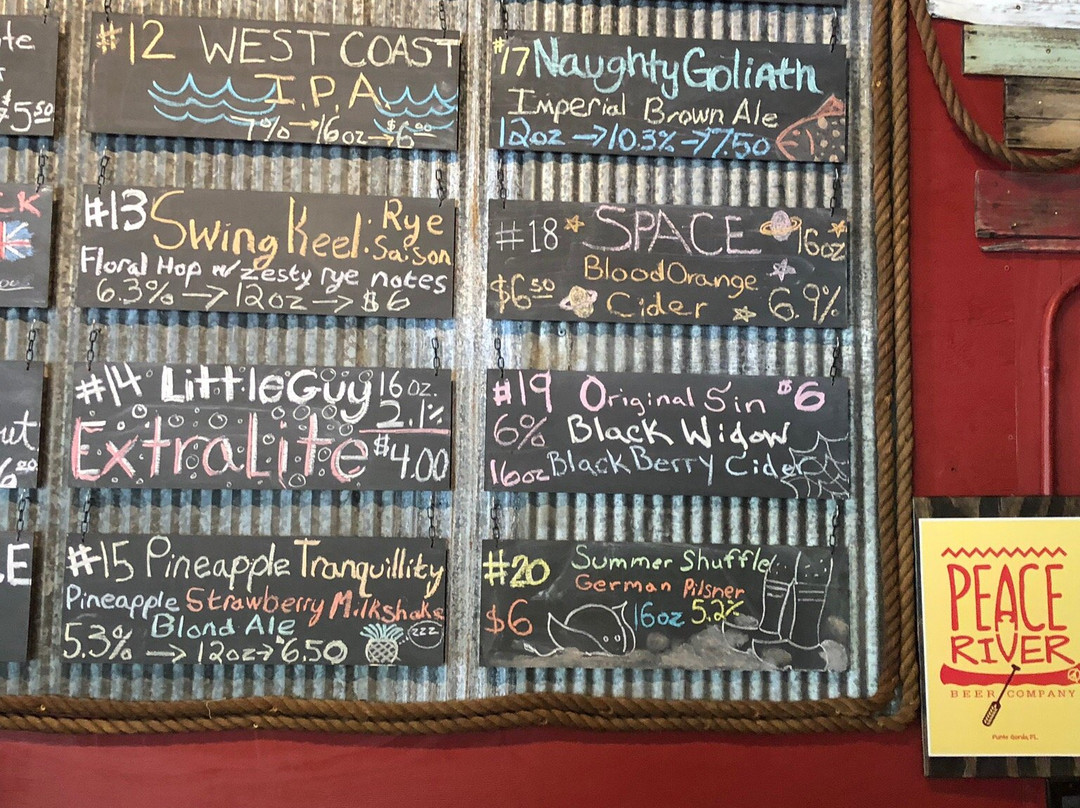 $5.50
#12 WEST COAST
I.P.A.
7% → 16oz → $6.00
#13 Swing Keel: Rye
Saison
Floral Hop w/ zesty rye notes
6.3% → 12oz → $6
#14 LittleGuy 16oz.
2.1%
ExtraLite $4.00
#15 Pineapple Tranquillity
Pineapple Strawberry Milkshake
Blond Ale zzz
5.3% → 12oz → 6.50
#17 Naughty Goliath
Imperial Brown Ale
12oz → 10.3% → 7.50
#18 SPACE 16oz
Blood Orange
$6.50 Cider 6.9%
#19 Original Sin $6
6% Black Widow
16oz BlackBerry Cider
#20 Summer Shuffle
German Pilsner
$6 16oz 5.2%
PEACE
RIVER
BEER COMPANY
Punta Gorda, FL